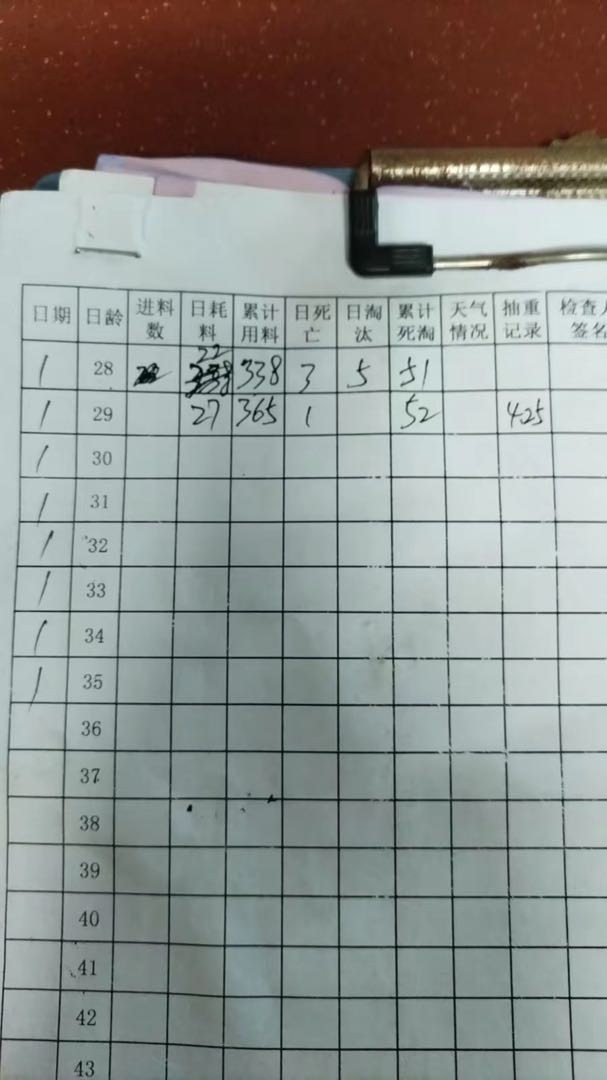 日期 日龄 进料数 日耗料 累计用料 日死亡 日淘汰 累计死淘 天气情况 抽重记录 检查人签名
/ 28 22 338 3 5 51
/ 29 27 365 1 52 425
/ 30
/ 31
/ 32
/ 33
/ 34
/ 35
36
37
38
39
40
41
42
43